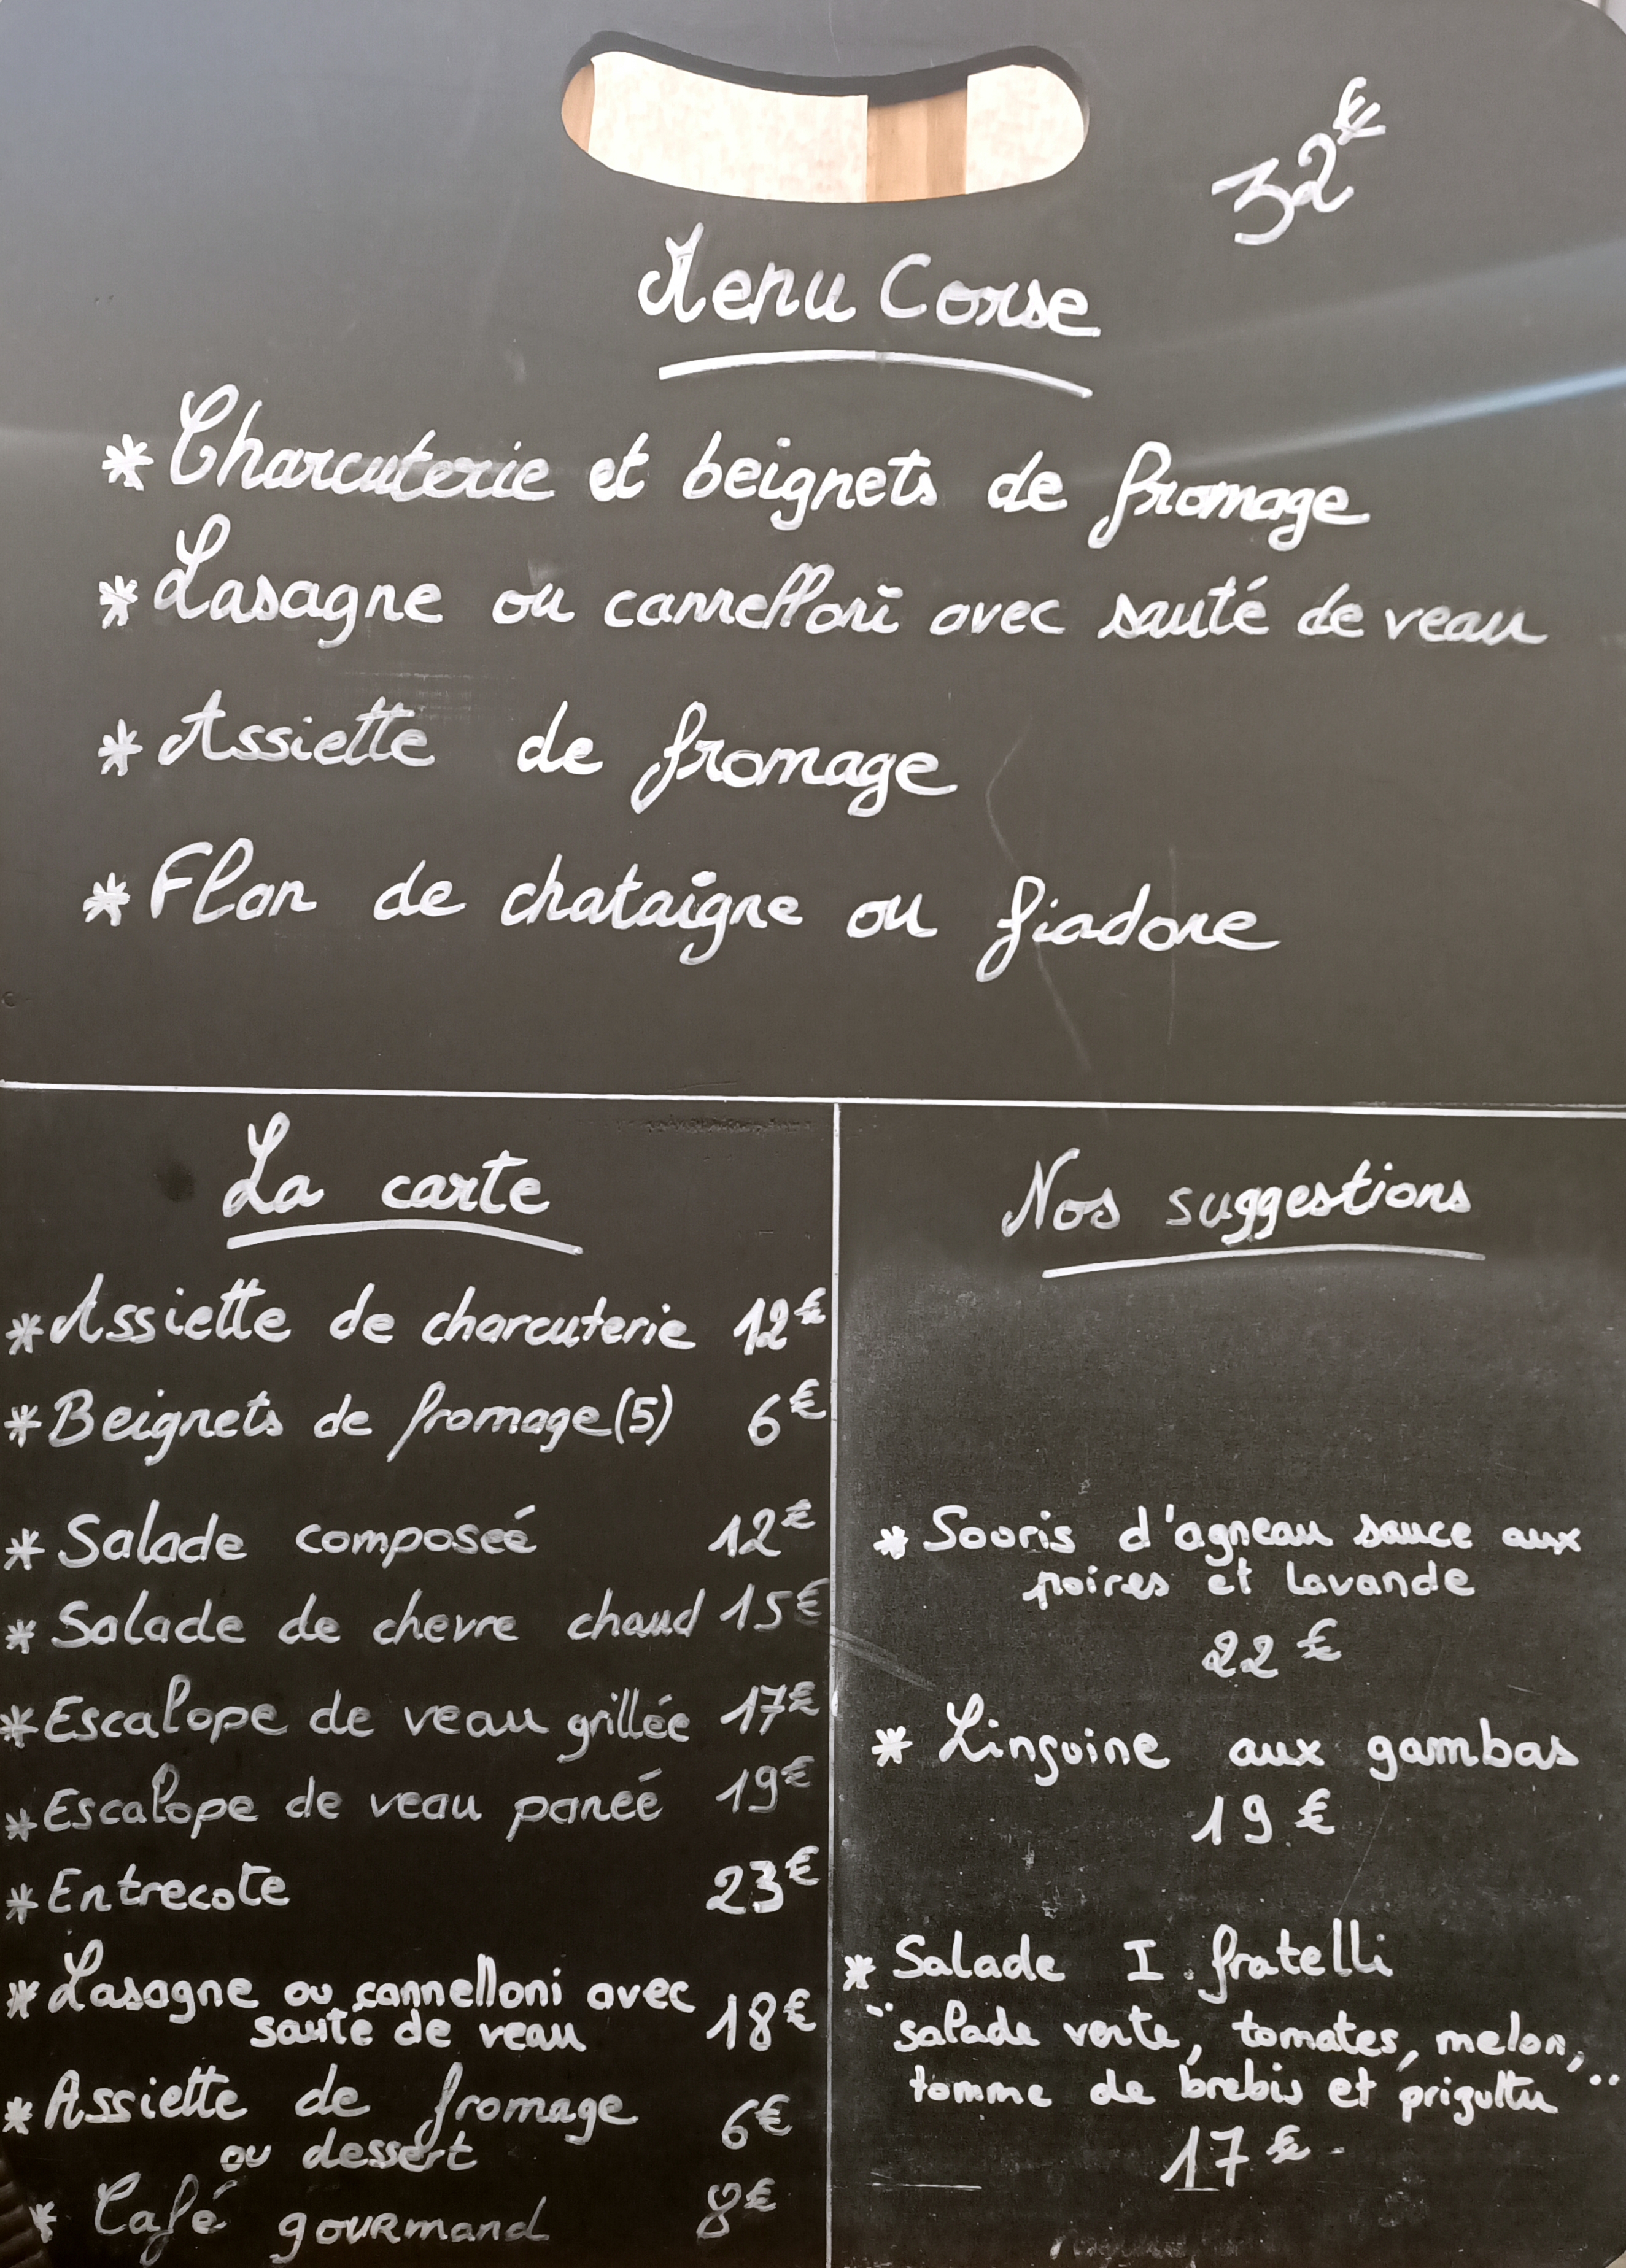 32€
Menu Corse
* Charcuterie et beignets de fromage
* Lasagne ou cannelloni avec sauté de veau
* Assiette de fromage
* Flan de chataigne ou fiadone
La carte
* Assiette de charcuterie 12€
* Beignets de fromage (5) 6€
* Salade composeé 12€
* Salade de chevre chaud 15€
* Escalope de veau grillée 17€
* Escalope de veau paneé 19€
* Entrecote 23€
* Lasagne ou cannelloni avec
sauté de veau 18€
* Assiette de fromage
ou dessert 6€
* Café gourmand 8€
Nos suggestions
* Sooris d'agneau sauce aux
poires et lavande
22 €
* Linguine aux gambas
19 €
* Salade I fratelli
"salade verte, tomates, melon,
tomme de brebis et prizuttu"
17 €